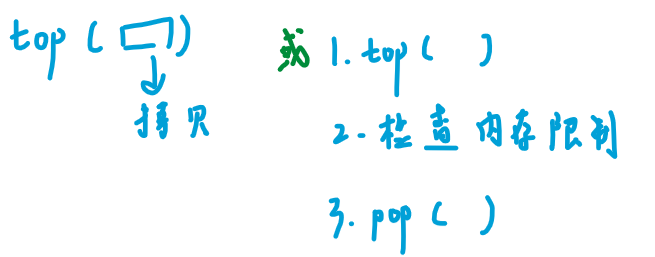 top( )
拷贝
或 1. top( )
2. 检查内存限制
3. pop( )